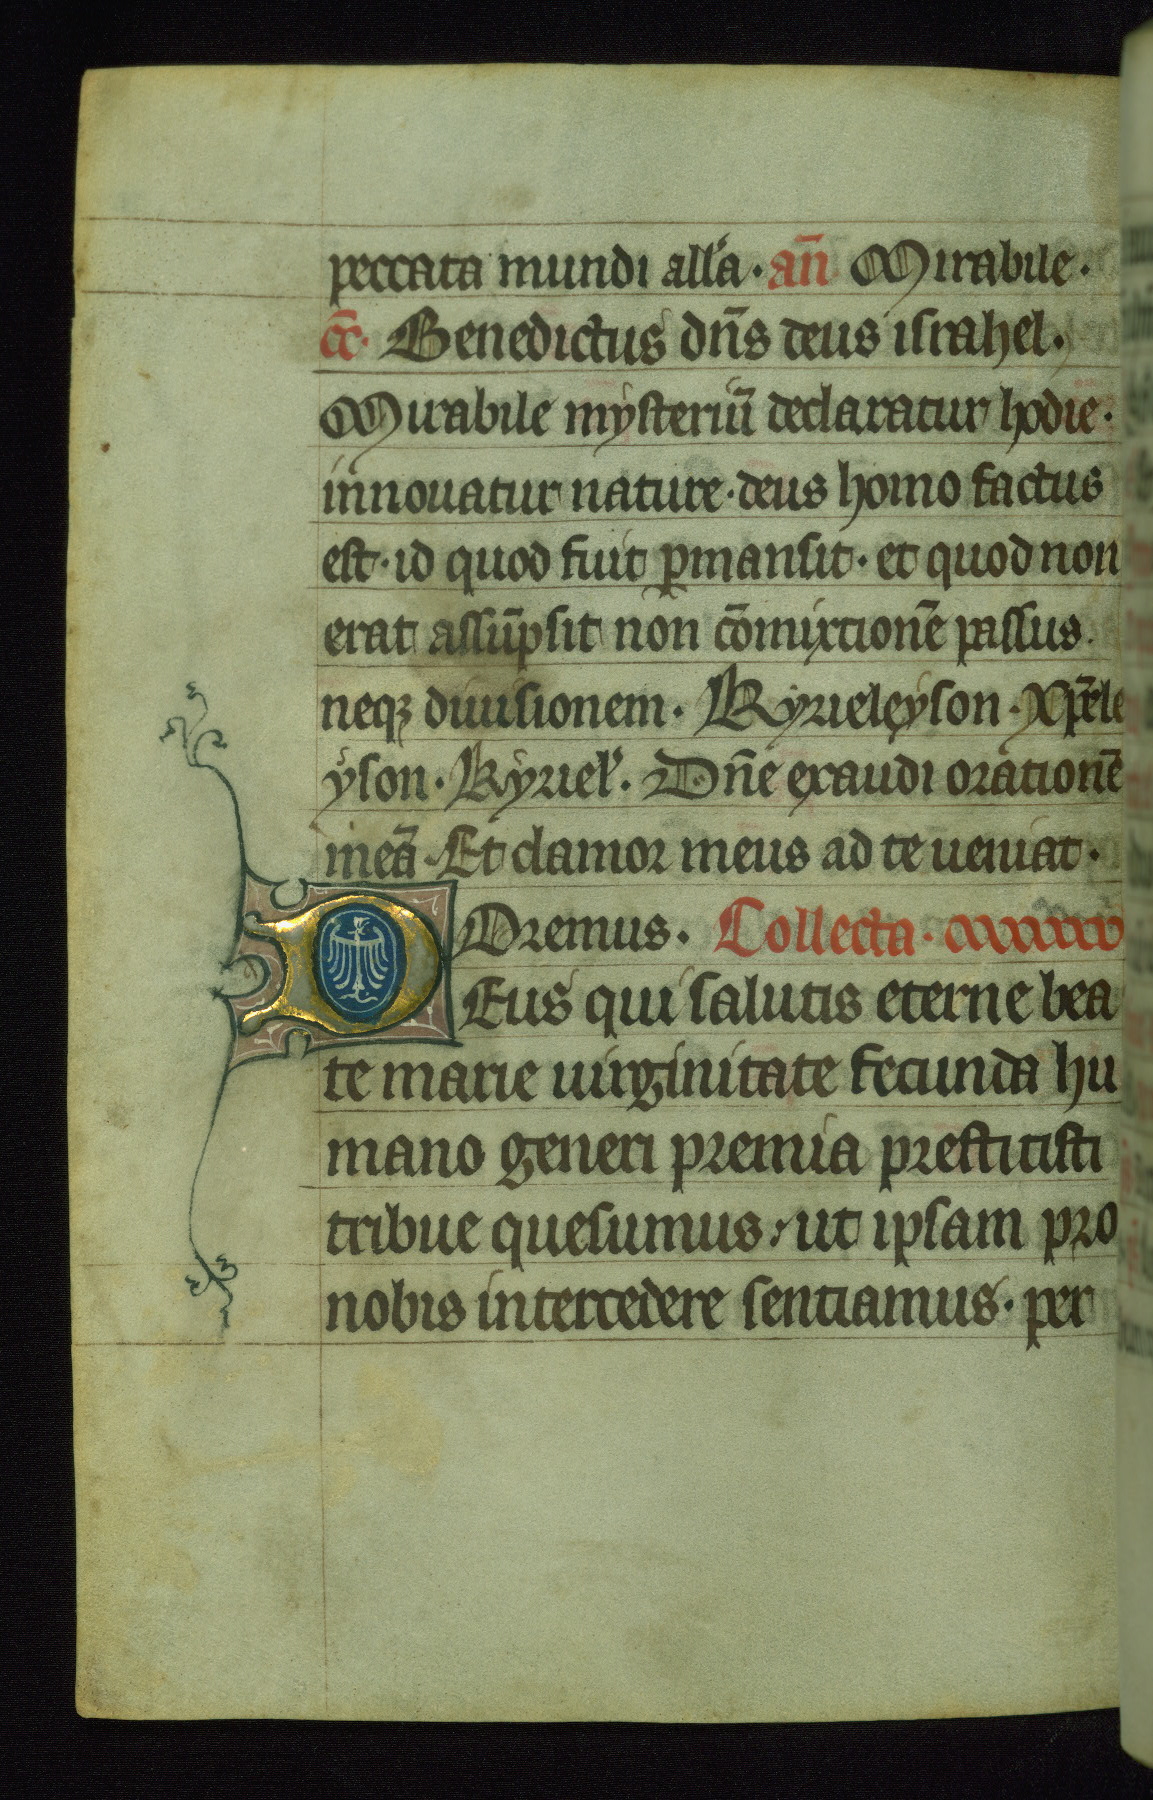 peccata mundi all'a · an̄ Mirabile ·
c̄c̄ · Benedictus dn̄s deus israhel ·
Mirabile mysteriū declaratur hodie ·
innouatur nature · deus homo factus
est · id quod fuit ꝑmansit · et quod non
erat assūpsit non cōmixtionē passus ·
neqꝫ diuisionem · Kyrieleyson · Xp̄ele
yson · Kyriel' · Dn̄e exaudi orationē
meā · Et clamor meus ad te ueniat ·
Oremus · Collecta ·
DEus qui salutis eterne bea
te marie uirginitate fecunda hu
mano generi premia prestitisti
tribue quesumus · ut ipsam pro
nobis intercedere sentiamus · per